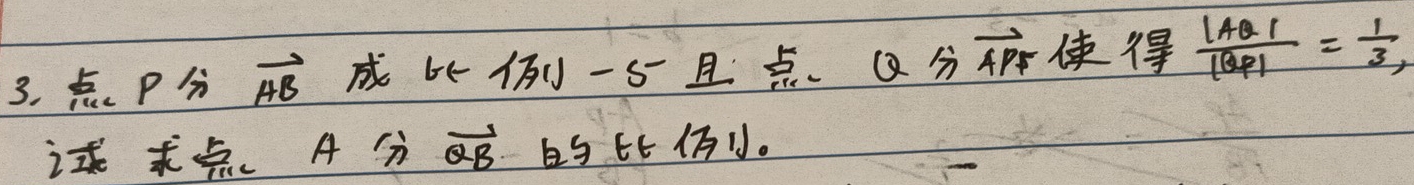 3. 点 P 分 $\overrightarrow{AB}$ 成比例 -5 且点 Q 分 $\overrightarrow{AP}$ 使得 $\frac{|AQ|}{|QP|} = \frac{1}{3}$,
试求点 A 分 $\overrightarrow{QB}$ 的比例。